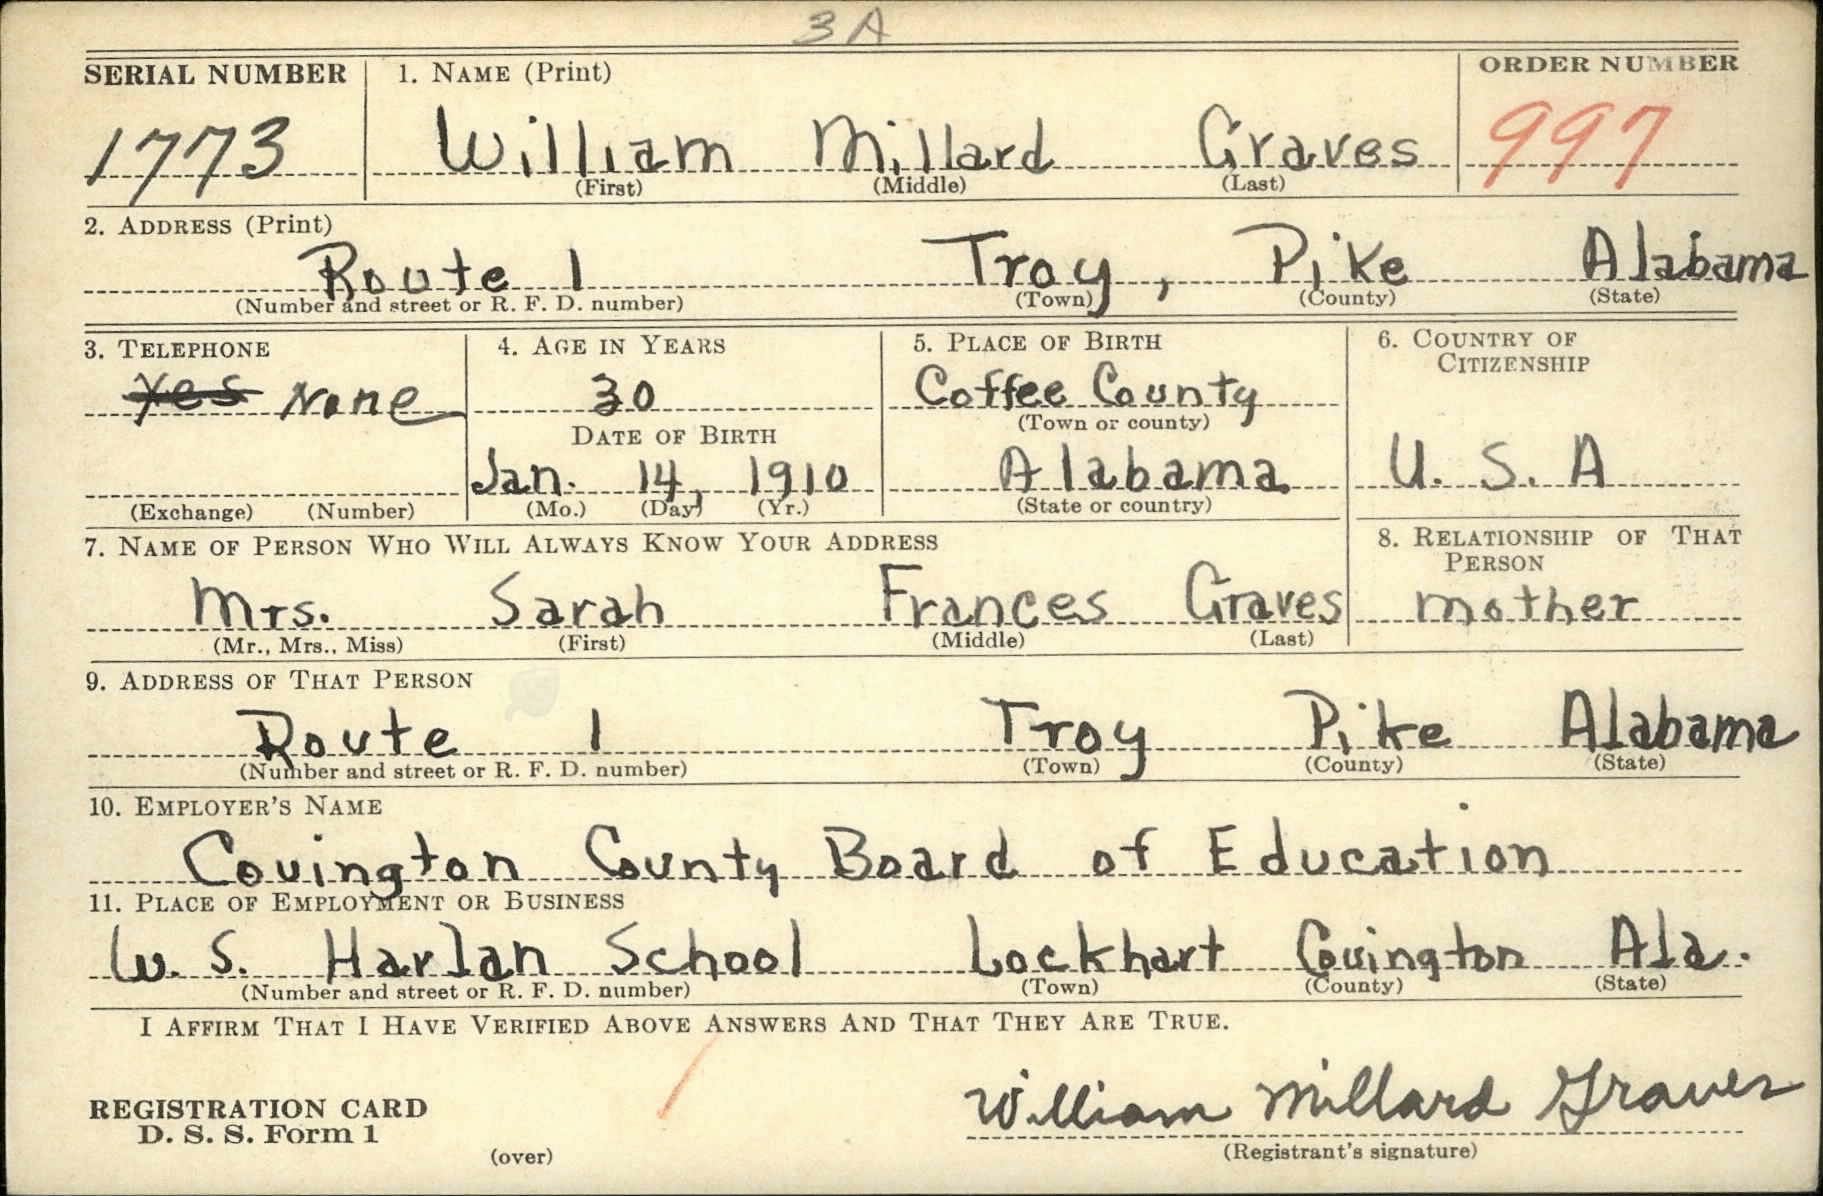 3A
SERIAL NUMBER 1. NAME (Print) ORDER NUMBER
1773 William Millard Graves 997
(First) (Middle) (Last)
2. ADDRESS (Print)
Route 1 Troy, Pike Alabama
(Number and street or R. F. D. number) (Town) (County) (State)
3. TELEPHONE 4. AGE IN YEARS 5. PLACE OF BIRTH 6. COUNTRY OF
CITIZENSHIP
Yes None 30 Coffee County
(Town or county)
DATE OF BIRTH
Jan. 14, 1910 Alabama U. S. A
(Exchange) (Number) (Mo.) (Day) (Yr.) (State or country)
7. NAME OF PERSON WHO WILL ALWAYS KNOW YOUR ADDRESS 8. RELATIONSHIP OF THAT
PERSON
Mrs. Sarah Frances Graves mother
(Mr., Mrs., Miss) (First) (Middle) (Last)
9. ADDRESS OF THAT PERSON
Route 1 Troy Pike Alabama
(Number and street or R. F. D. number) (Town) (County) (State)
10. EMPLOYER'S NAME
Covington County Board of Education
11. PLACE OF EMPLOYMENT OR BUSINESS
W. S. Harlan School Lockhart Covington Ala.
(Number and street or R. F. D. number) (Town) (County) (State)
I AFFIRM THAT I HAVE VERIFIED ABOVE ANSWERS AND THAT THEY ARE TRUE.
REGISTRATION CARD William Millard Graves
D. S. S. Form 1
(over) (Registrant's signature)